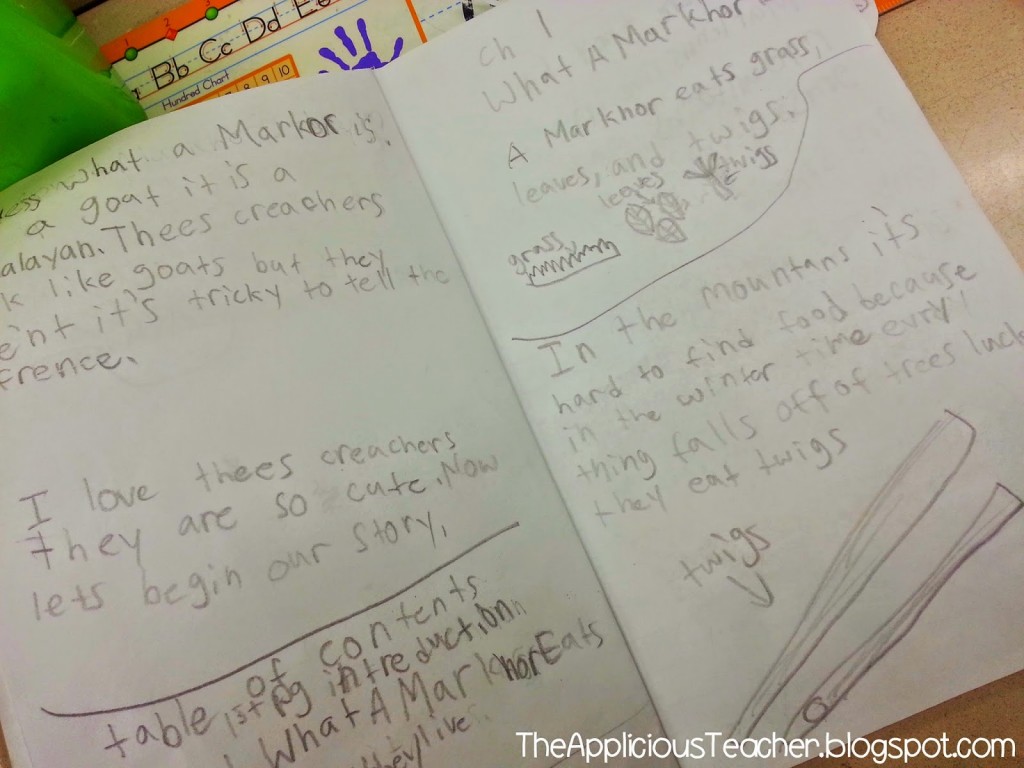 Bb Cc Dd Ee
Hundred Chart
8 9 10
what a Markor is.
a goat it is a
alayan. Thees creachers
k like goats but they
e'nt it's tricky to tell the
frence.
I love thees creachers
they are so cute. Now
lets begin our story.
table of contents
1st pg intreduction
What A Markhor Eats
they live
ch 1
What A Markhor
A Markhor eats grass,
leaves, and twigs.
leaves twigs
grass
In the mountans it's
hard to find food because
in the winter time evry
thing falls off of trees luck
they eat twigs
twigs
TheAppliciousTeacher.blogspot.com